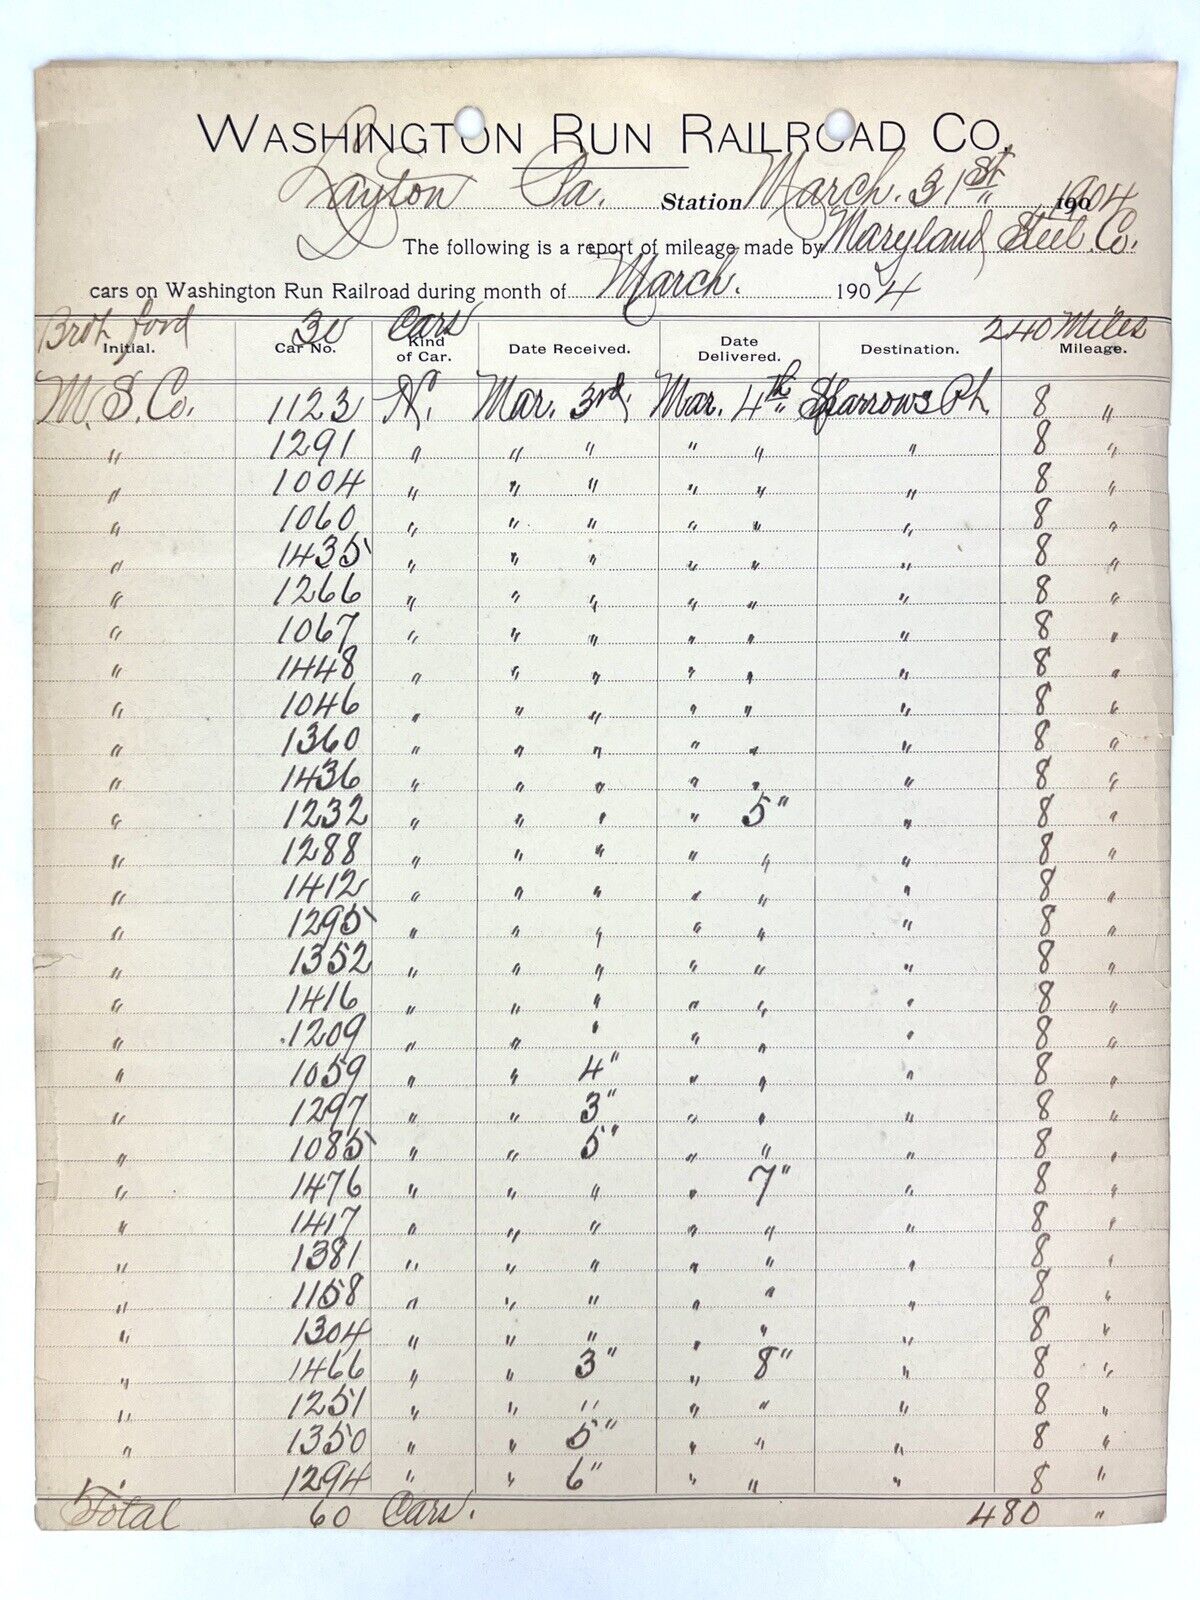 WASHINGTON RUN RAILROAD CO.
Layton Pa. Station March. 31st 1904
The following is a report of mileage made by Maryland Steel Co.
cars on Washington Run Railroad during month of March. 1904
Brot ford 30 Cars 240 Miles
Initial. Car No. Kind of Car. Date Received. Date Delivered. Destination. Mileage.
M. S. Co. 1123 N. Mar. 3rd, Mar. 4th Sparrows Pt. 8 "
" 1291 " " " " " " 8 "
" 1004 " " " " " " 8 "
" 1060 " " " " " " 8 "
" 1435 " " " " " " 8 "
" 1266 " " " " " " 8 "
" 1067 " " " " " " 8 "
" 1448 " " " " " " 8 "
" 1046 " " " " " " 8 "
" 1360 " " " " " " 8 "
" 1436 " " " " " " 8 "
" 1232 " " " " 5" " 8 "
" 1288 " " " " " " 8 "
" 1412 " " " " " " 8 "
" 1295 " " " " " " 8 "
" 1352 " " " " " " 8 "
" 1416 " " " " " " 8 "
" 1209 " " " " " " 8 "
" 1059 " " 4" " " " 8 "
" 1297 " " 3" " " " 8 "
" 1085 " " 5" " " " 8 "
" 1476 " " " " 7" " 8 "
" 1417 " " " " " " 8 "
" 1381 " " " " " " 8 "
" 1158 " " " " " " 8 "
" 1304 " " " " " " 8 "
" 1466 " " 3" " 8" " 8 "
" 1251 " " " " " " 8 "
" 1350 " " 5" " " " 8 "
" 1294 " " 6" " " " 8 "
Total 60 Cars. 480 "